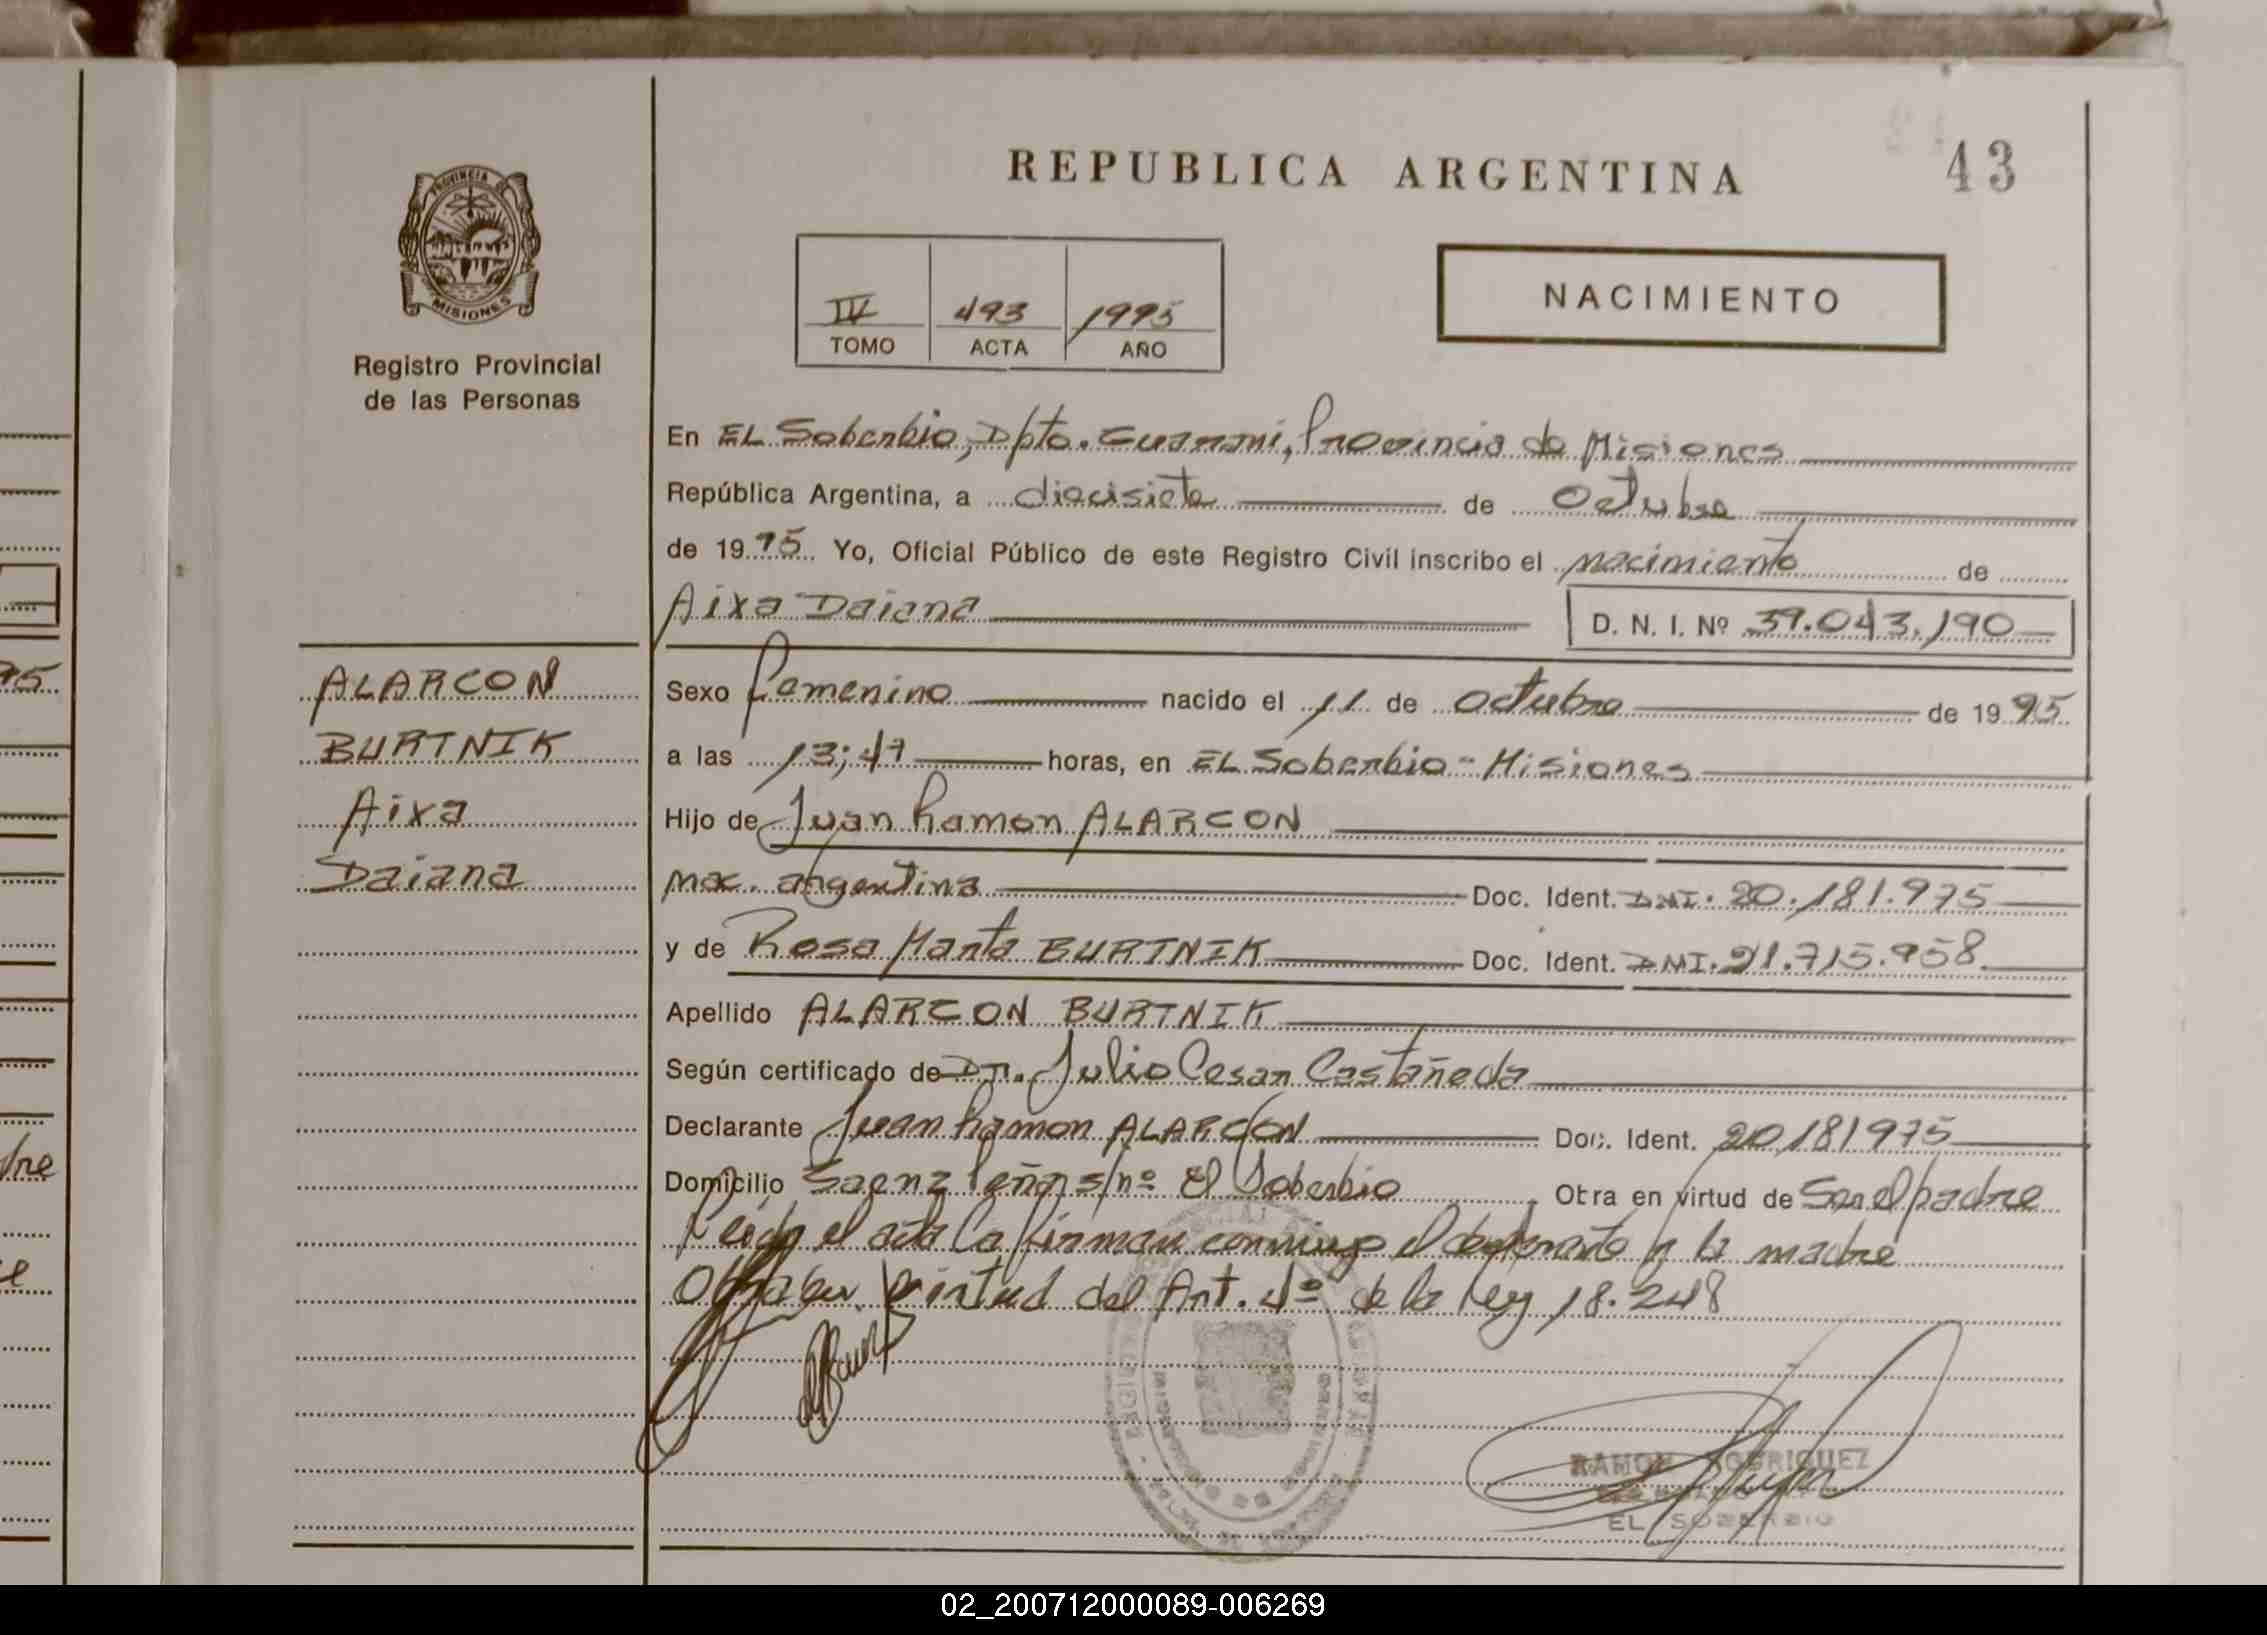 REPUBLICA ARGENTINA
43
PROVINCIA DE
MISIONES
Registro Provincial
de las Personas
IV 493 1995
TOMO ACTA AÑO
NACIMIENTO
En EL Soberbio, Dpto. Guarani, Provincia de Misiones
República Argentina, a diecisiete de Octubre
de 1995 Yo, Oficial Público de este Registro Civil inscribo el nacimiento de
Aixa Daiana
D. N. I. Nº 39.043.190
ALARCON
BURTNIK
Aixa
Daiana
Sexo femenino nacido el 11 de octubre de 1995
a las 13;47 horas, en EL Soberbio - Misiones
Hijo de Juan Ramon ALARCON
nac. argentina Doc. Ident. DNI. 20.181.975
y de Rosa Marta BURTNIK Doc. Ident. DNI. 21.715.958
Apellido ALARCON BURTNIK
Según certificado de Dr. Julio Cesar Castañeda
Declarante Juan Ramon ALARCON Doc. Ident. 20181975
Domicilio Saenz Peña s/nº El Soberbio Obra en virtud de Ser el padre
Leida el acta la firman conmigo el declarante y la madre
Obra en virtud del Art. 4º de la Ley 18.248
RAMON RODRIGUEZ
EL SOBERBIO
95
dre
e
02_200712000089-006269